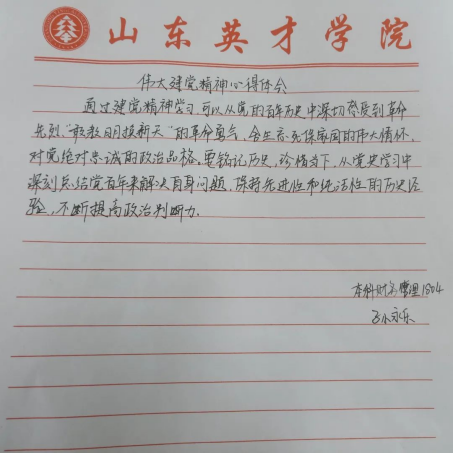 山东英才学院
伟大建党精神心得体会
通过建党精神学习,可以从党的百年历史中深切感受到革命
先烈"敢教日月换新天"的革命勇气,舍生忘死保家国的伟大情怀,
对党绝对忠诚的政治品格。要铭记历史,珍惜当下,从党史学习中
深刻总结党百年来解决自身问题,保持先进性和纯洁性的历史经
验,不断提高政治判断力.
本科财务管理1804
永乐